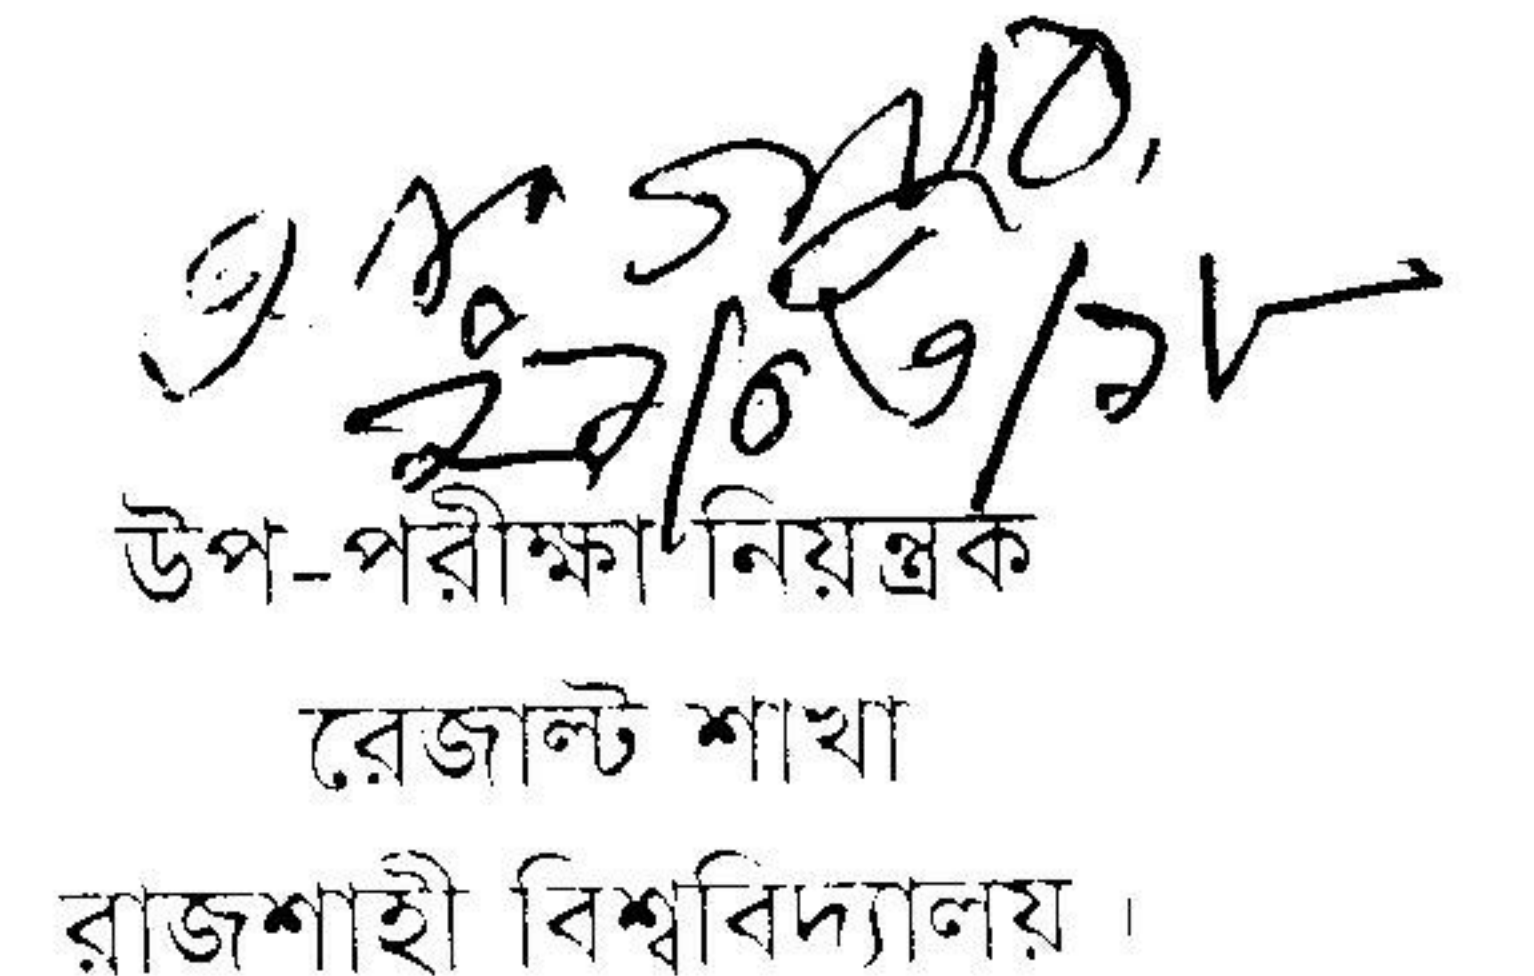 ২৯/০৫/১৮
উপ-পরীক্ষা নিয়ন্ত্রক
রেজাল্ট শাখা
রাজশাহী বিশ্ববিদ্যালয় ।